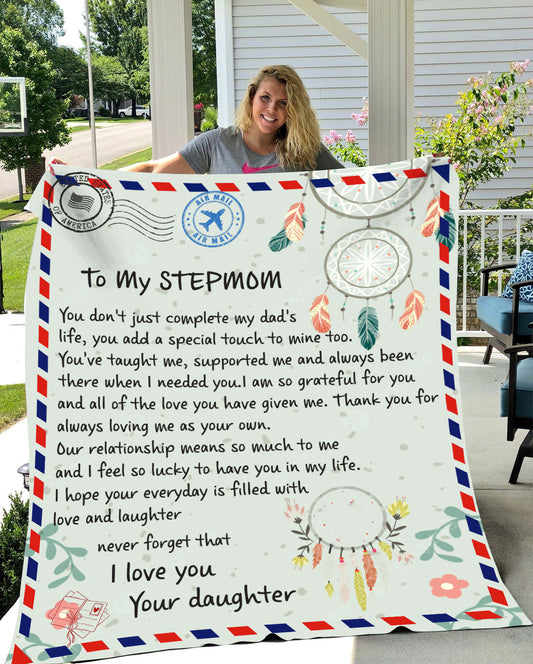 UNITED STATES
OF AMERICA
AIR MAIL
AIR MAIL
To My STEPMOM
You don't just complete my dad's
life, you add a special touch to mine too.
You've taught me, supported me and always been
there when I needed you.I am so grateful for you
and all of the love you have given me. Thank you for
always loving me as your own.
Our relationship means so much to me
and I feel so lucky to have you in my life.
I hope your everyday is filled with
love and laughter
never forget that
I love you
Your daughter